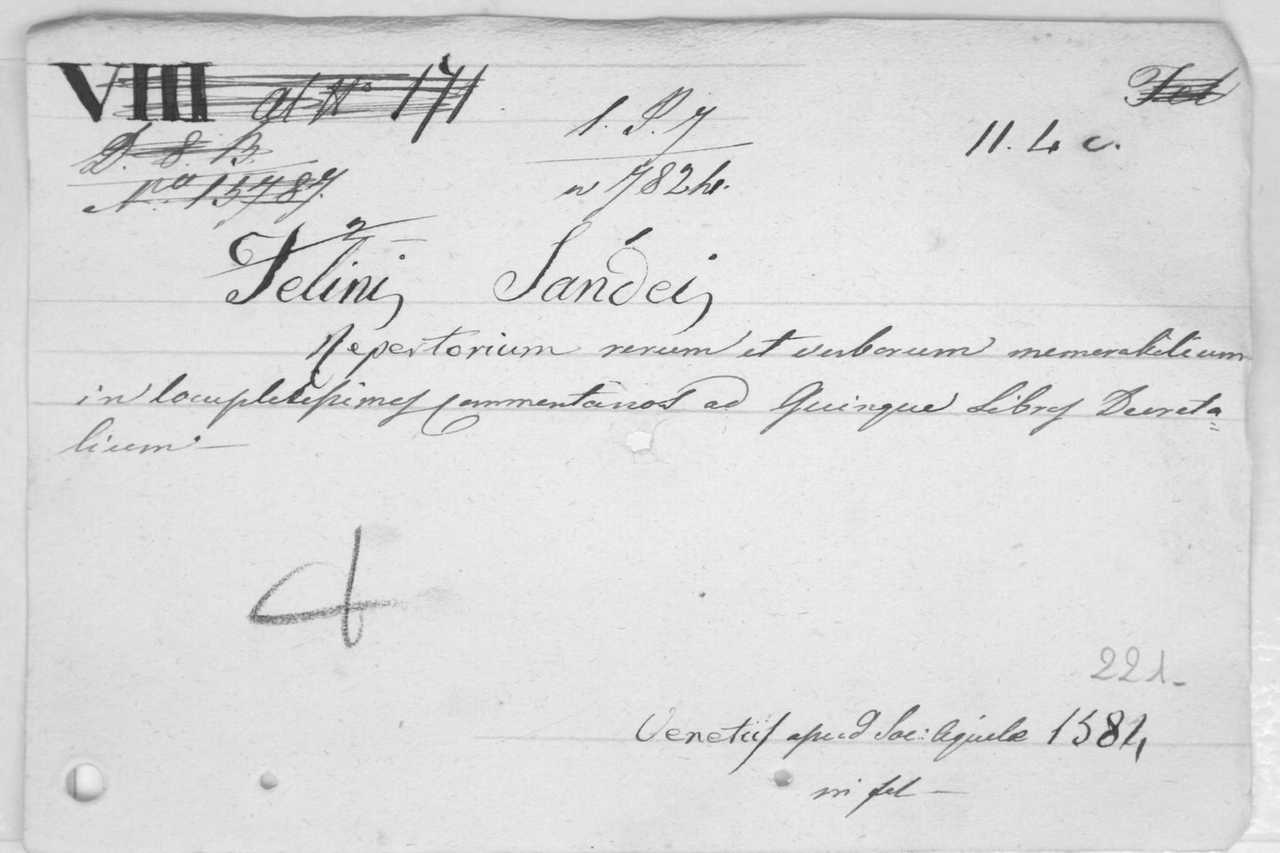 VIII at No 171
Fel
D. 8. B.
No 15787.
1. P. 7
n 782 h.
11. 4 c.
2
Felini Sandei
Repertorium rerum et verborum memorabilium
in locupletissimos Commentarios ad Quinque Libros Decreta=
lium.—
221-
Venetiis apud Soc: Aquilae 1584
in fol—